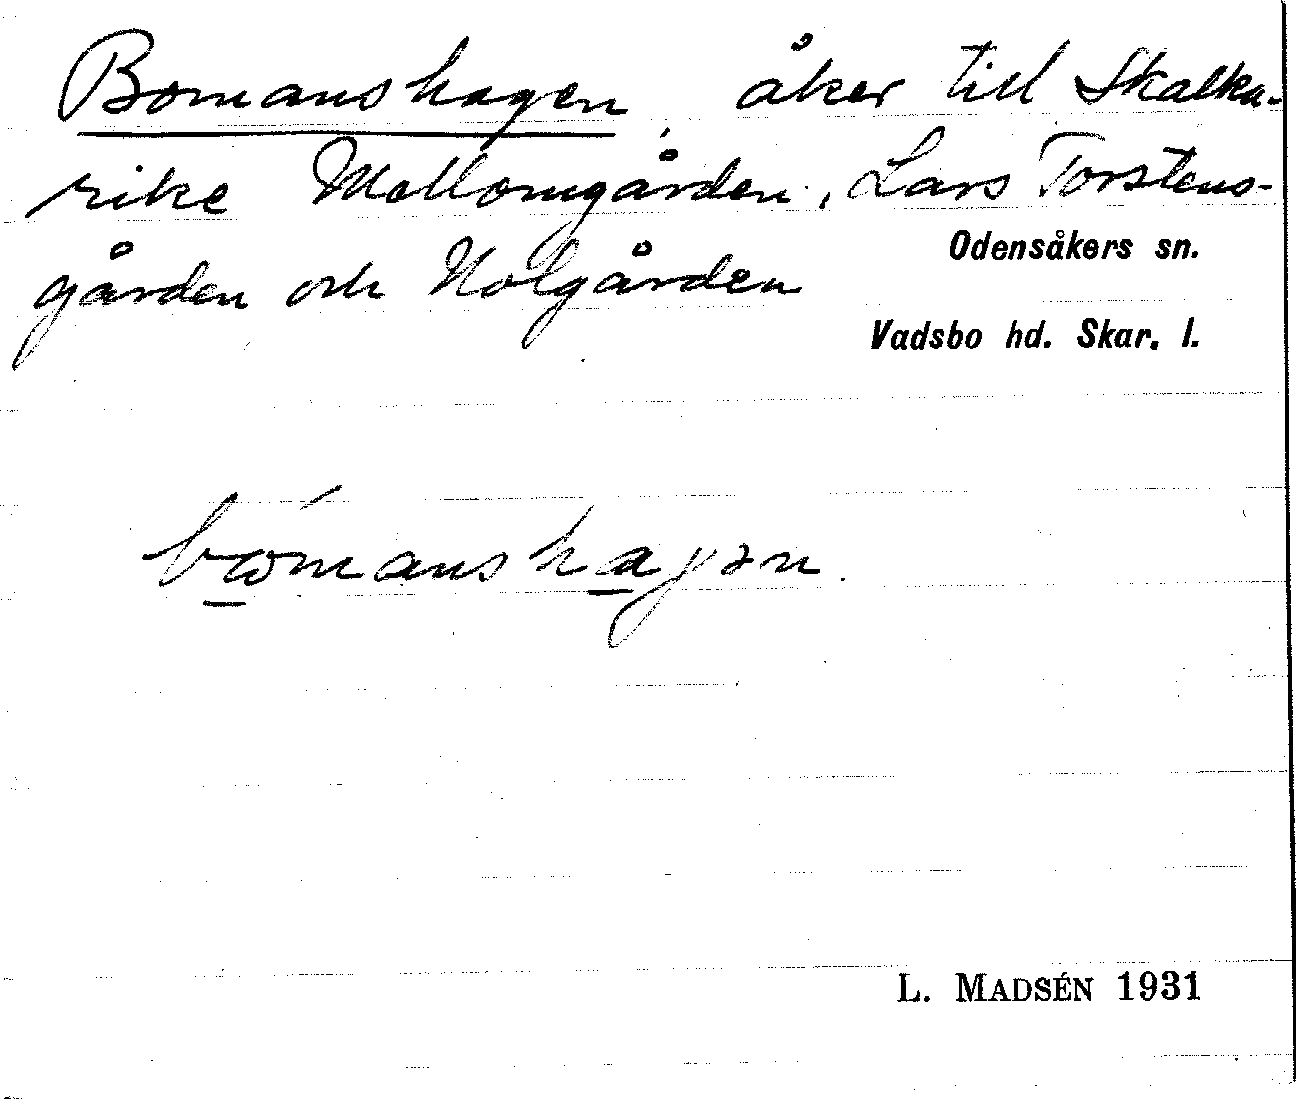 Bomanshagen, åker till Skalka-
rike Mellomgården, Lars Torstens-
gården och Nolgården
Odensåkers sn.
Vadsbo hd. Skar. l.
bómanshagən.
L. MADSÉN 1931